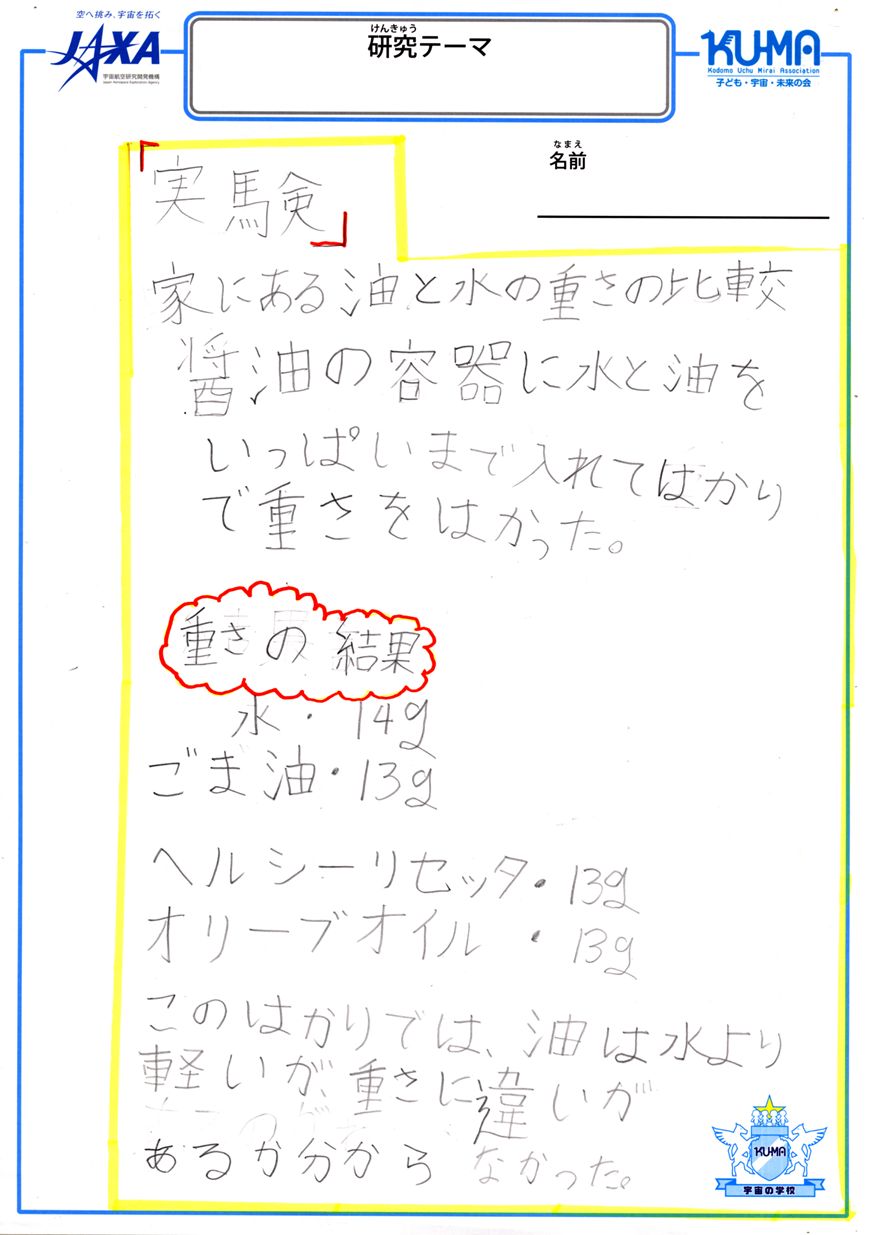 空へ挑み、宇宙を拓く
JAXA
宇宙航空研究開発機構
Japan Aerospace Exploration Agency
けんきゅう
研究テーマ
KU-MA
Kodomo Uchu Mirai Association
子ども・宇宙・未来の会
なまえ
名前
「実験」
家にある油と水の重さの比較
醤油の容器に水と油を
いっぱいまで入れてはかり
で重さをはかった。
重さの結果
水・14g
ごま油・13g
ヘルシーリセッタ・13g
オリーブオイル・13g
このはかりでは、油は水より
軽いが、重さに違いが
あるか分からなかった。
KU-MA
宇宙の学校